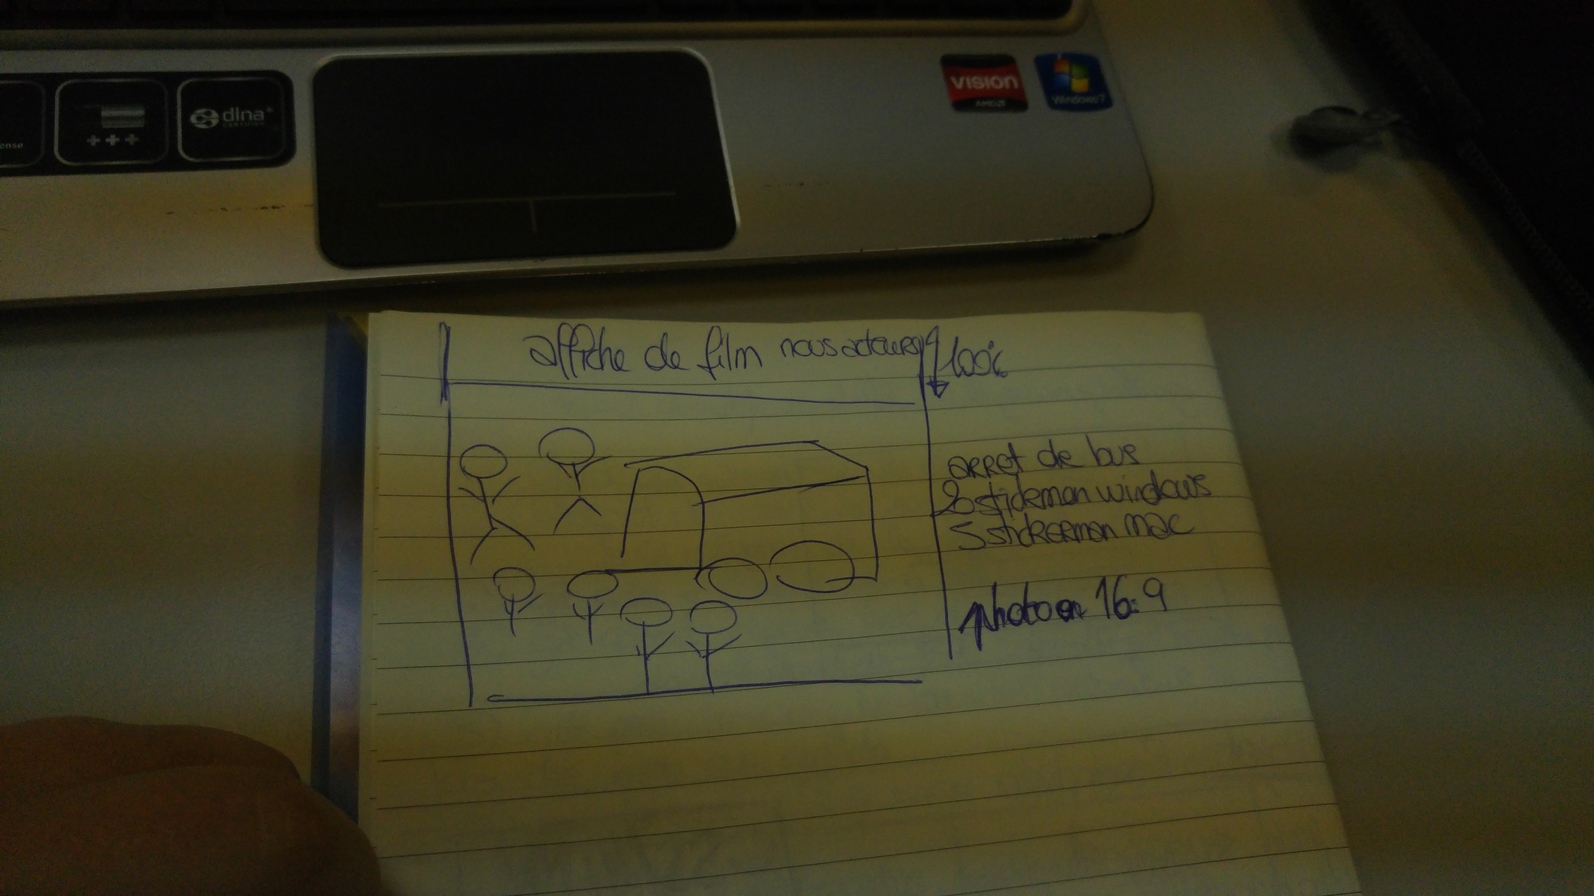 ense
+++
dlna
CERTIFIED
VISION
AMD
Windows 7
affiche de film nous acteurs
arret de bus
stickman windows
5 stickerman mac
photo en 16:9